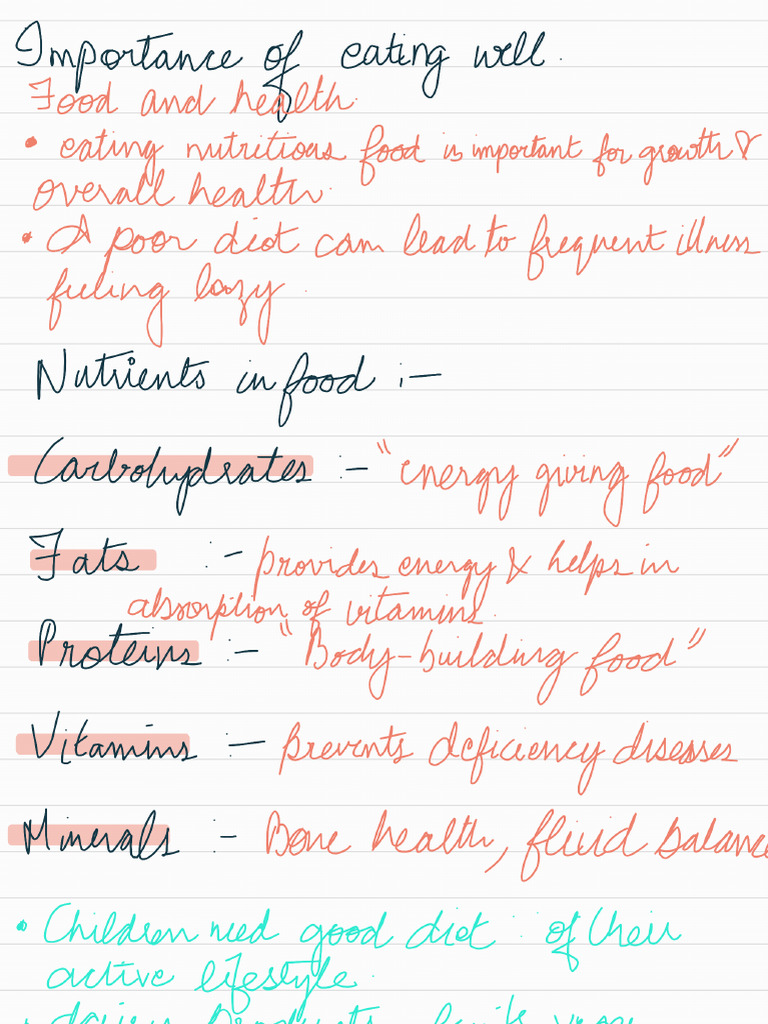 Importance of eating well.
Food and health.
• eating nutritious food is important for growth &
overall health.
• A poor diet can lead to frequent illness
feeling lazy.
Nutrients in food :-
Carbohydrates :- "energy giving food"
Fats :- provides energy & helps in
absorption of vitamins.
Proteins :- "Body-building food"
Vitamins :- Prevents deficiency diseases
Minerals :- Bone health, fluid balance
• Children need good diet ∵ of their
active lifestyle.
• dairy products, fruits